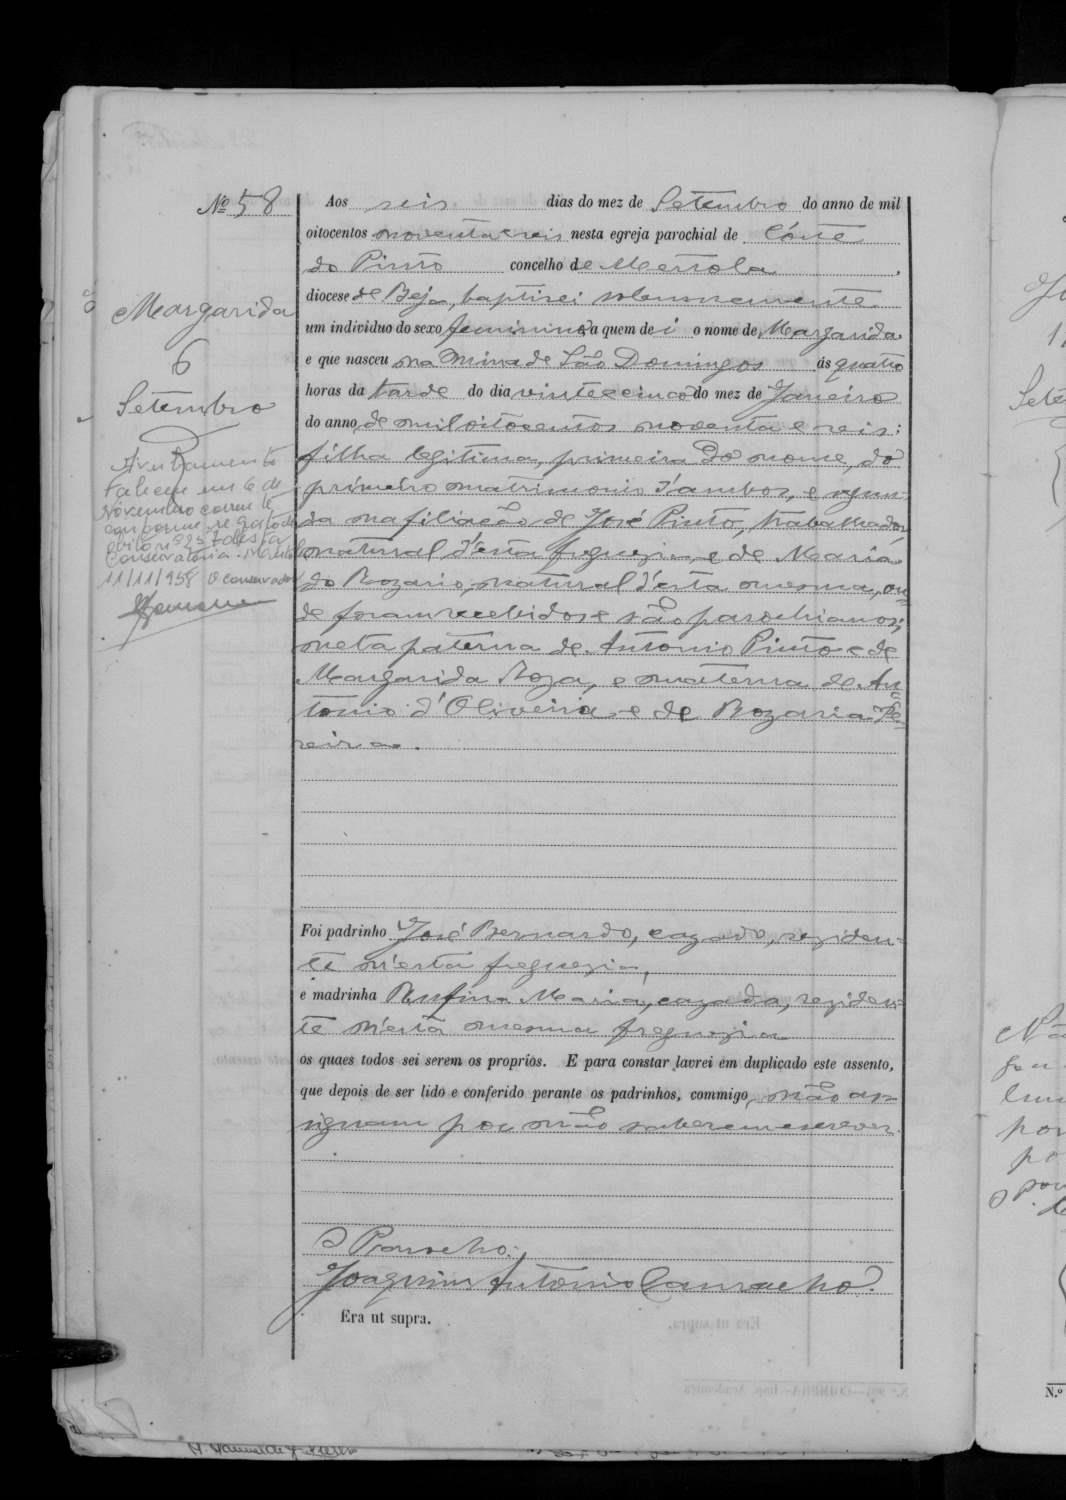 Nº 58
Margarida
6
Setembro
Averbamento
Faleceu em 6 de
Novembro corrente
conforme registo de
obito nº 237 desta
Conservatoria. Mertola
11/11/958 O conservador
Aos seis dias do mez de Setembro do anno de mil
oitocentos noventa e seis nesta egreja parochial de Córte
do Pinto concelho de Mertola,
diocese de Beja, baptisei solemnemente
um individuo do sexo feminino a quem dei o nome de Margarida
e que nasceu na Mina de São Domingos ás quatro
horas da tarde do dia vinte e cinco do mez de Janeiro
do anno de mil oitocentos noventa e seis:
filha legitima, primeira do nome, do
primeiro matrimonio d'ambos, e segun-
da na filiação de José Pinto, trabalhador,
natural d'esta freguezia, e de Maria
do Rozario, natural d'esta mesma, on-
de foram recebidos e são parochianos;
neta paterna de Antonio Pinto e de
Margarida Roza, e materna de An-
tonio d'Oliveira e de Rozaria Pe-
reira.
Foi padrinho José Bernardo, cazado, reziden-
te n'esta freguezia,
e madrinha Rufina Maria, cazada, reziden-
te n'esta mesma freguezia
os quaes todos sei serem os proprios. E para constar lavrei em duplicado este assento,
que depois de ser lido e conferido perante os padrinhos, commigo não as-
signam por não saberem escrever.
O Parocho:
Joaquim Antonio Camacho.
Era ut supra.
Nº